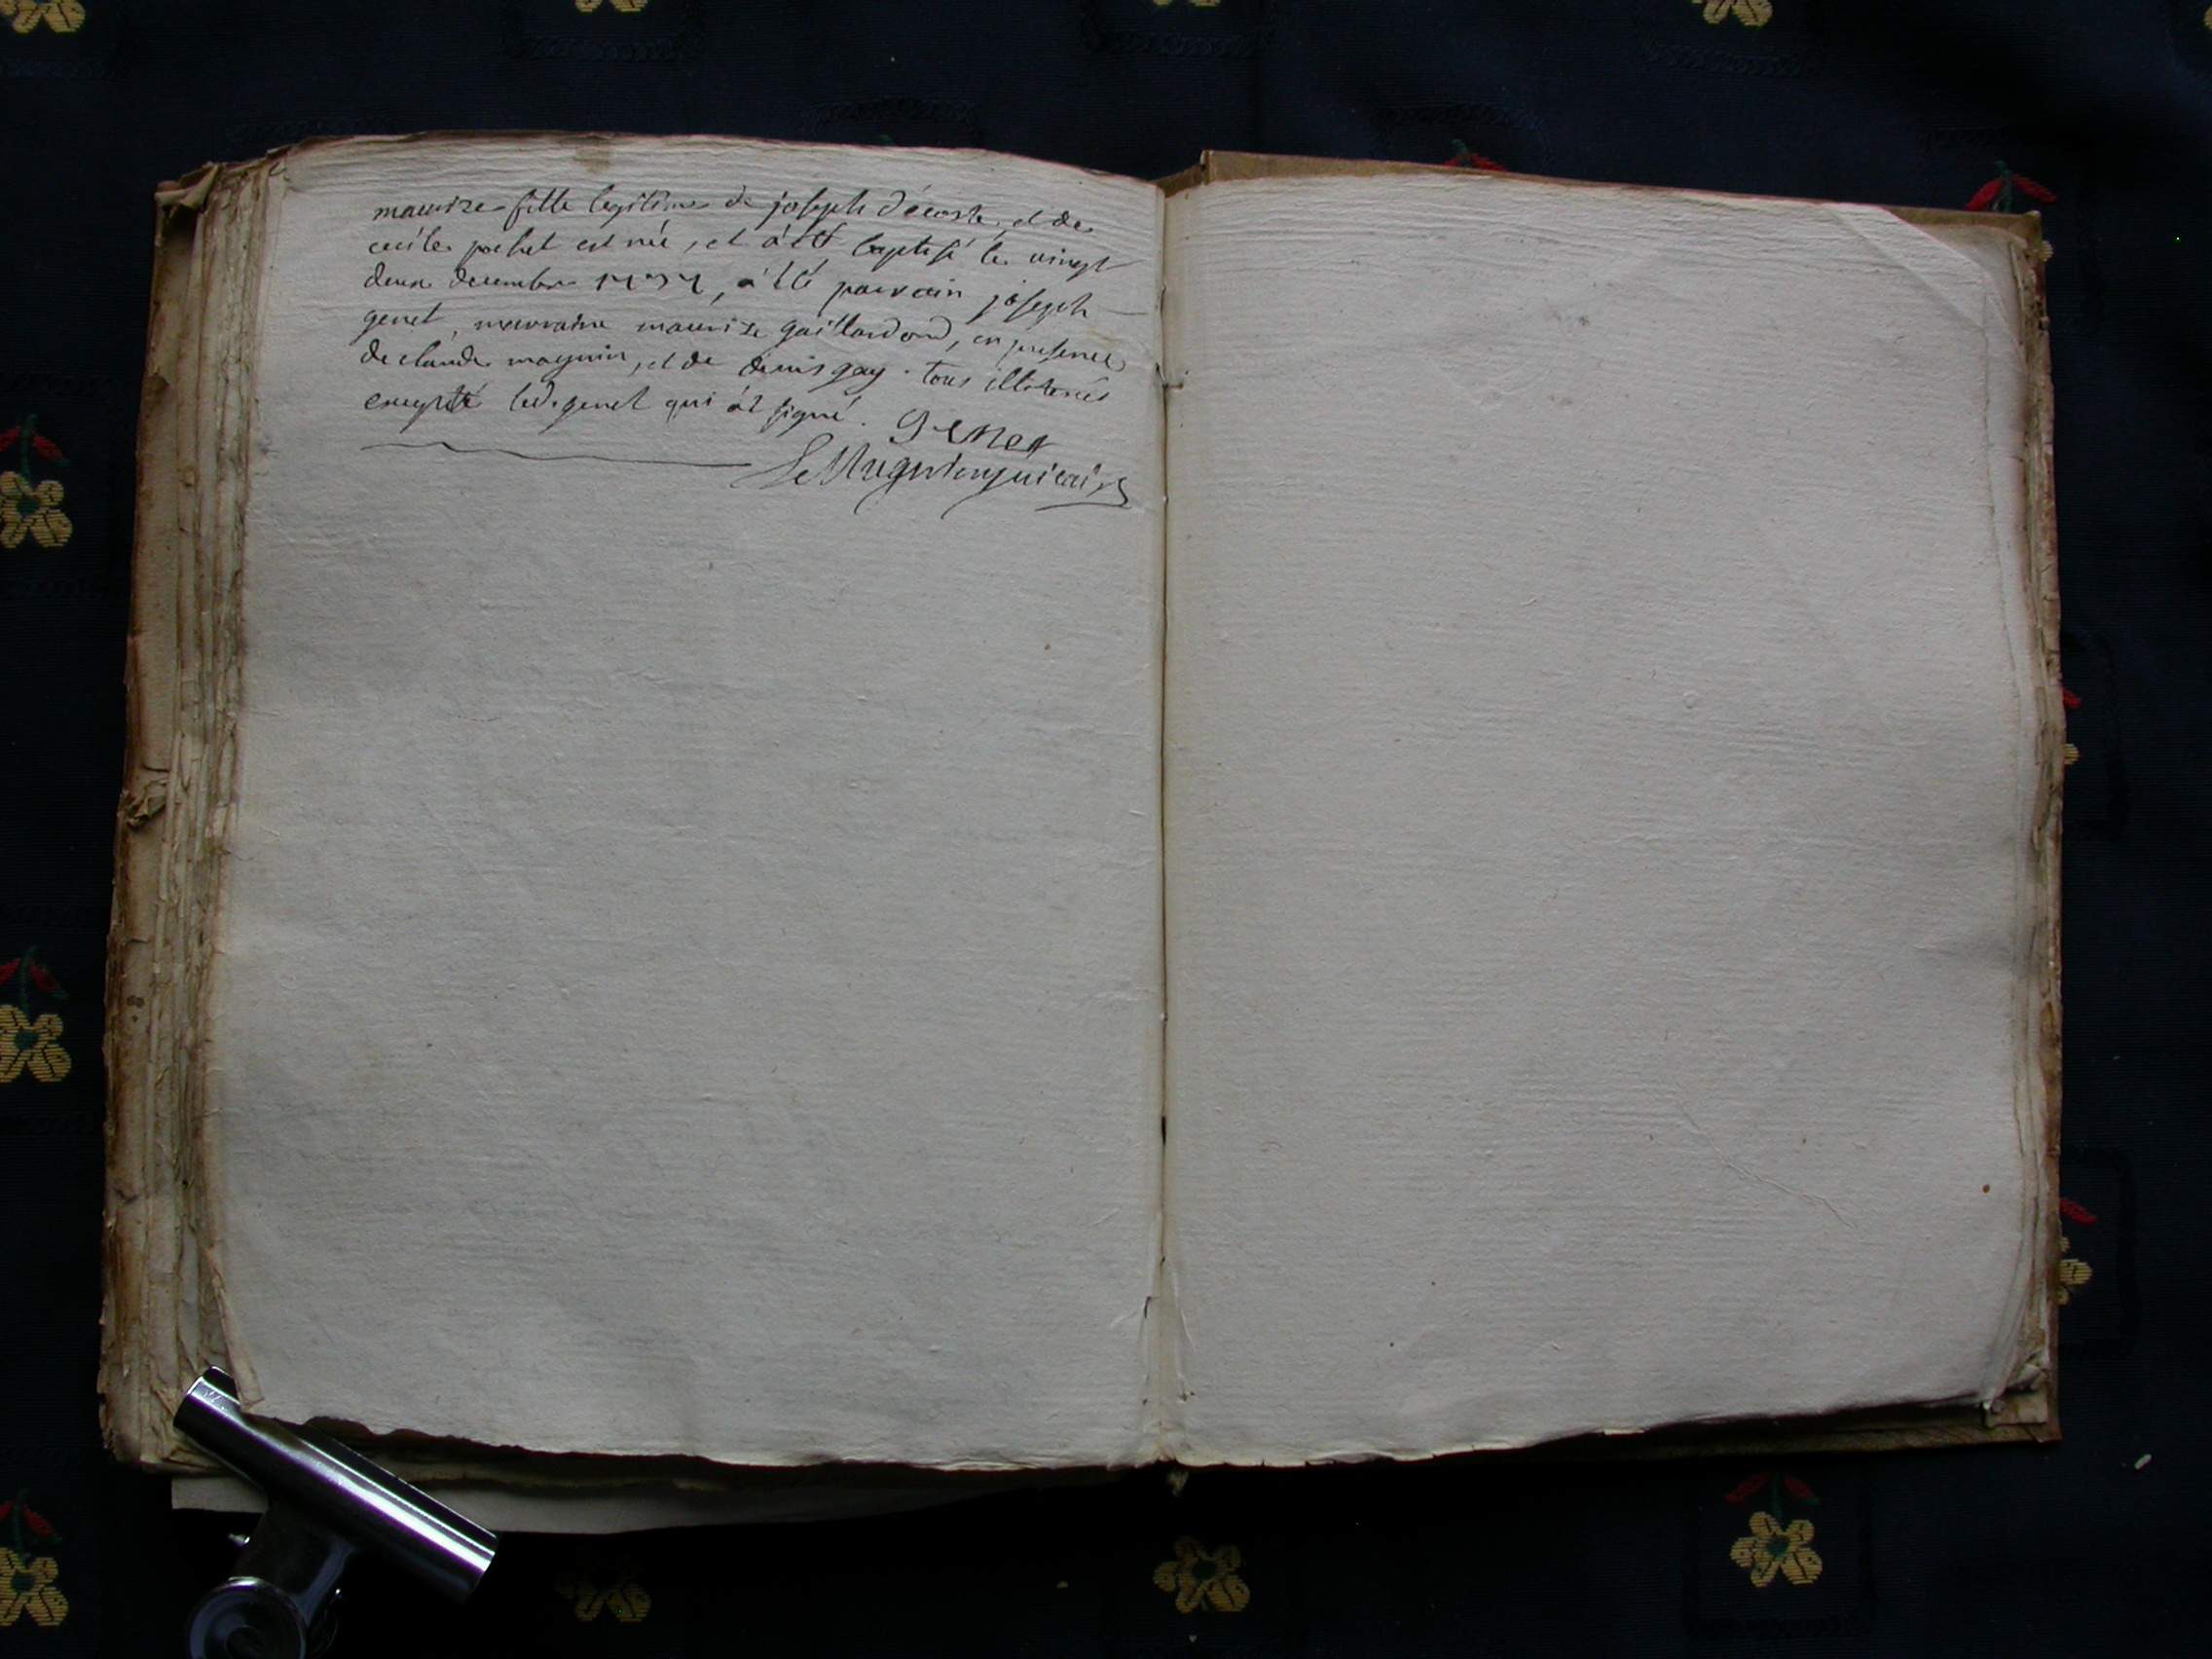 maurize fille legitime de joseph décoste, et de
cecile pochet est née, et à été baptisé le vingt
deux decembre, à été parrain joseph
genet, marraine maurize gaillardond, en presence
de claude magnin, et de denis gay. tous illiterés
excepté led. genet qui at signé. Genet
Le Magnin vicaire